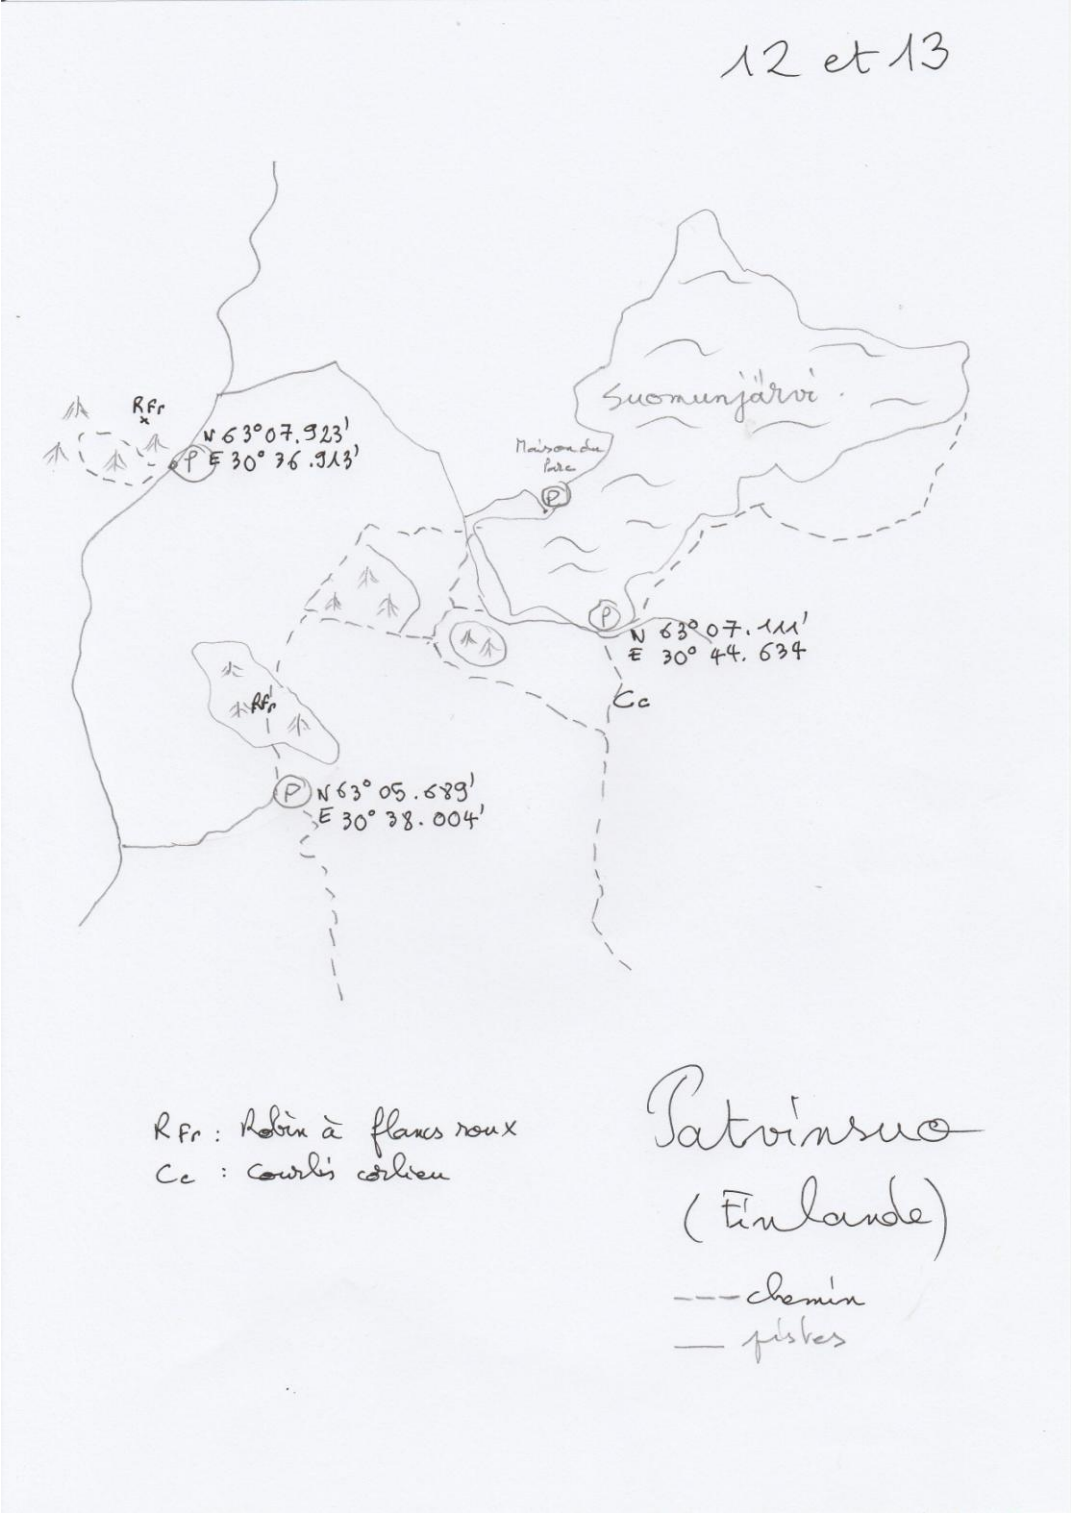 12 et 13
RFr
N 63° 07.923'
E 30° 36.913'
P
Suomunjärvi
Maison du
Parc
P
P
N 63° 07.111'
E 30° 44.634
Cc
RFr
P
N 63° 05.689'
E 30° 38.004'
RFr : Robin à flancs roux
Cc : Courlis corlieu
Patvinsuo
(Finlande)
chemin
pistes